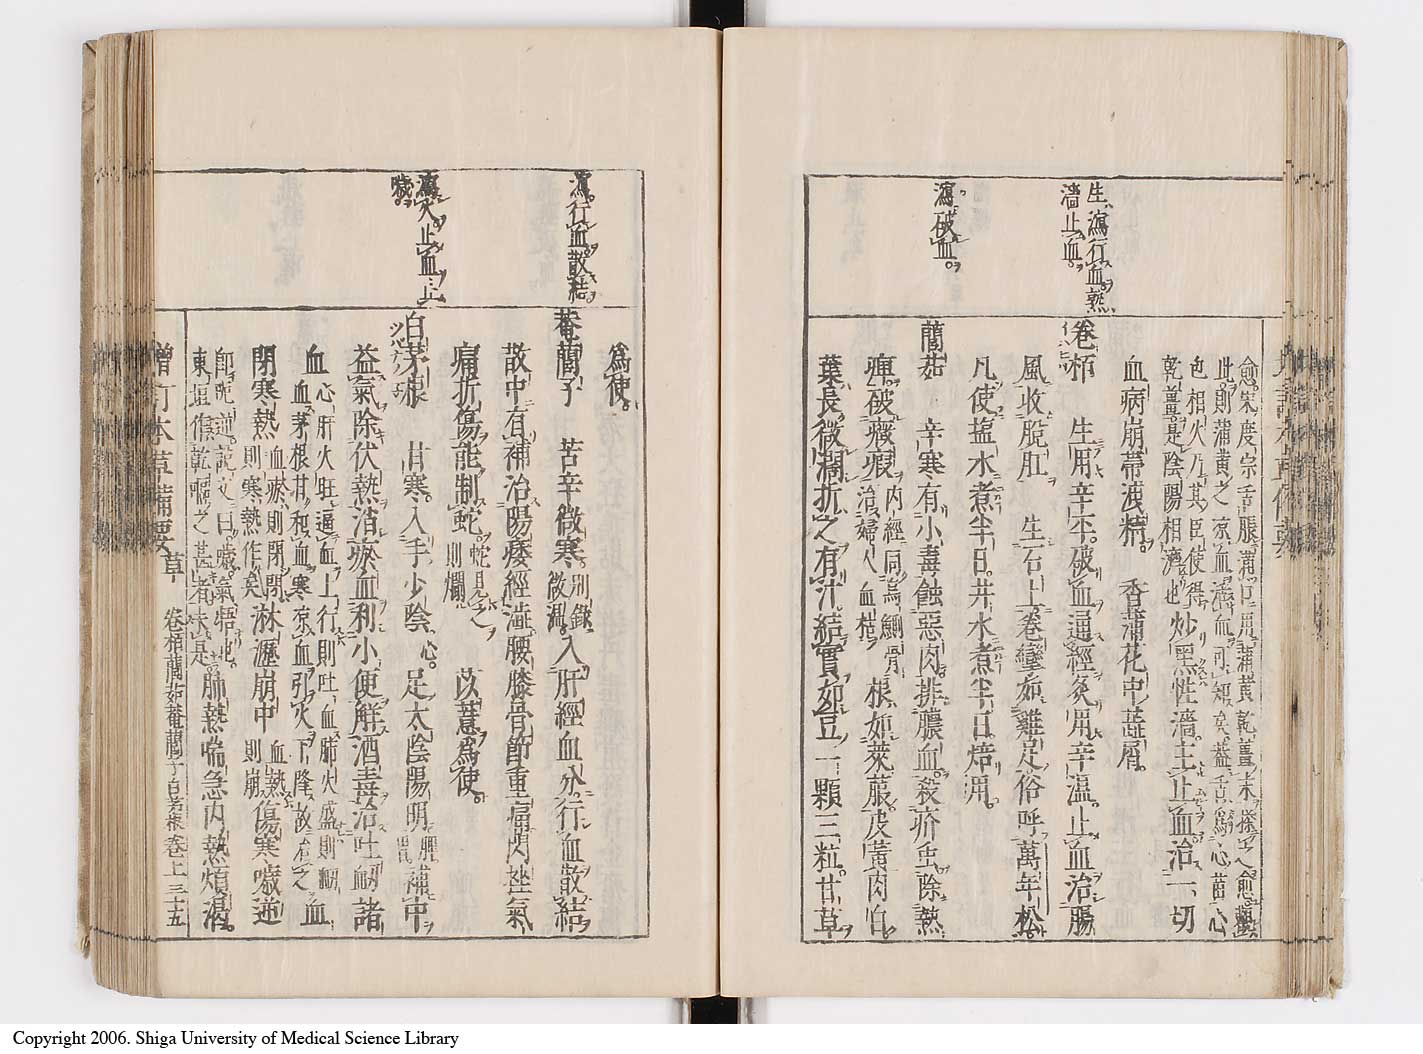 生瀉行血熟
濇止血
瀉破血
愈宋度宗舌脹滿口用蒲黃乾姜末搽之愈
此則蒲黃之凉血活血可知矣蓋舌爲心苗心
包相火乃其臣使得
乾薑是陰陽相濟也炒黑性濇主止血治一切
血病崩帶洩精 香蒲花中蘂屑
卷栢 生用辛平破血通經炙用辛溫止血治腸
風收脫肛 生石上卷攣如雞足俗呼萬年松
凡使塩水煮半日井水煮半日焙用
藺茹 辛寒有小毒蝕惡肉排膿血殺疥虫除熱
痺破癥瘕內經同烏鰂骨
治婦人血枯根如萊菔皮黃肉白
葉長微濶折之有汁結實如豆一顆三粒甘草
瀉行血散結
瀉火止血止
噦
爲使
菴䕡子 苦辛微寒別錄
微溫入肝經血分行血散結
散中有補治陽痿經澁腰膝骨節重痛閃挫氣
痛折傷能制蛇蛇見之
則爛 薏苡爲使
白茅根 甘寒入手少陰心足太陰陽明脾
胃補中
益氣除伏熱消瘀血利小便解酒毒治吐衄諸
血心肝火旺逼血上行則吐血肺火盛則衄
血茅根甘和血寒凉血引火下降故治之血
閉寒熱血瘀則閉閉
則寒熱作矣淋瀝崩中血熱
則崩傷寒噦逆
卽呃逆說文曰噦氣牾也
東垣作乾嘔之甚者未是肺熱喘急內熱煩渴
增訂本草備要 草 卷栢藺茹菴䕡子白茅根 卷上 三十五
Copyright 2006. Shiga University of Medical Science Library